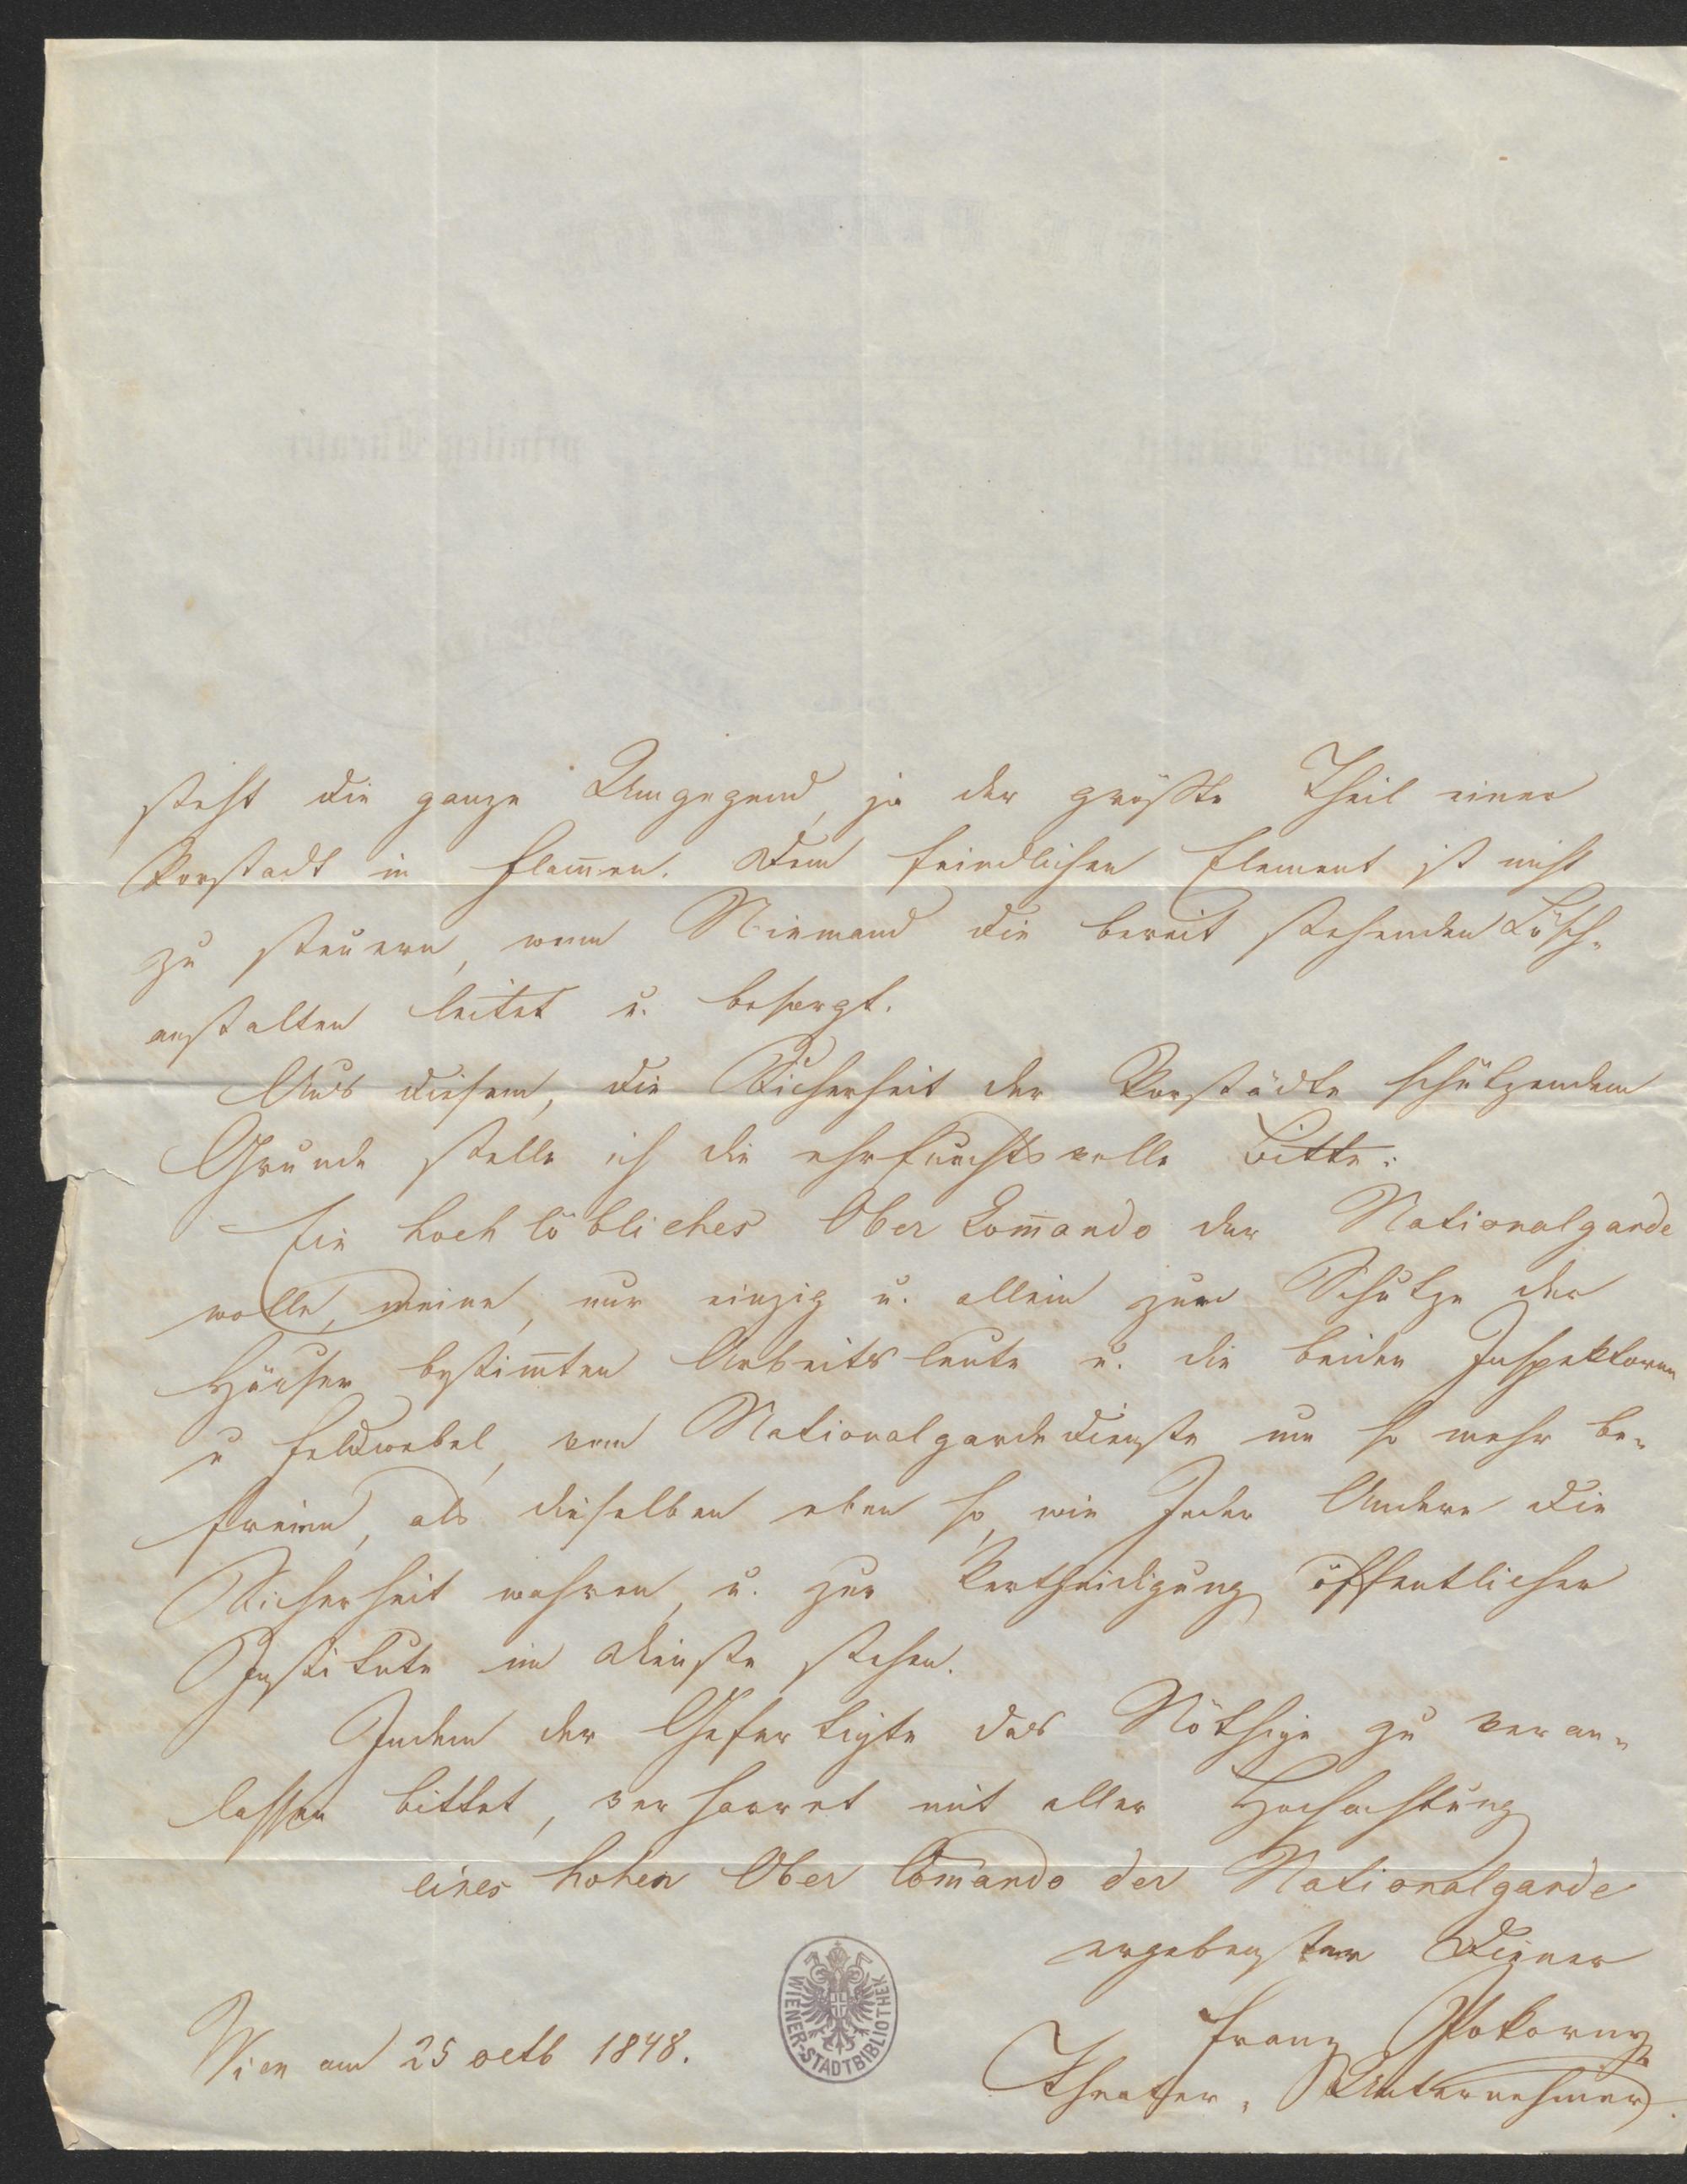 steht die ganze Umgegend, ja der größte Theil einer
Vorstadt in Flam̄en. Dem feindlichen Element ist nicht
zu steuern, wenn Niemand die bereit stehenden Lösch-
anstalten leitet u. besorgt.
Aus diesem, die Sicherheit der Vorstädte schützendem
Grunde stelle ich die ehrfurchtsvolle Bitte:
Ein hochlöbliches Ober Com̄ando der Nationalgarde
wolle, meine, nur einzig u. allein zum Schutze der
Häuser bestim̄ten Arbeitsleute u. die beiden Inspektoren
u Feldwebel, vom Nationalgardedienste um so mehr be-
freien, als dieselben eben so, wie Jeder Andere die
Sicherheit wahren, u. zur Vertheidigung öffentlicher
Institute im Dienste stehen.
Indem der Gefertigte das Nöthige zu veran-
lassen bittet, verharret mit aller Hochachtung
eines hohen Ober Com̄ando der Nationalgarde
ergebenster Diener
Franz Pokorny
Theater-Unternehmer.
Wien am 25 octb 1848.
WIENER-STADTBIBLIOTHEK